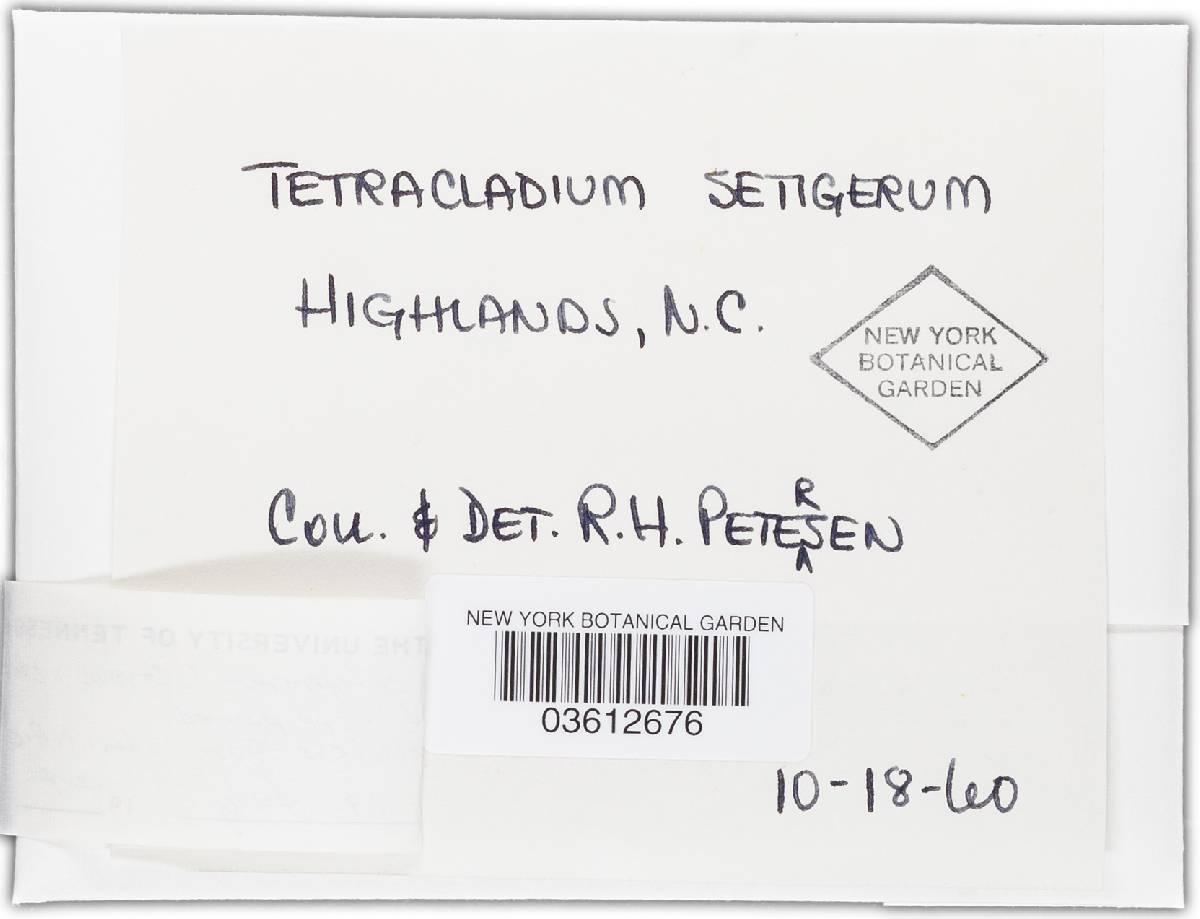 TETRACLADIUM SETIGERUM
HIGHLANDS, N.C.
NEW YORK
BOTANICAL
GARDEN
COLL. & DET. R.H. PETERSEN
NEW YORK BOTANICAL GARDEN
03612676
THE UNIVERSITY OF TENNESSEE
10-18-60